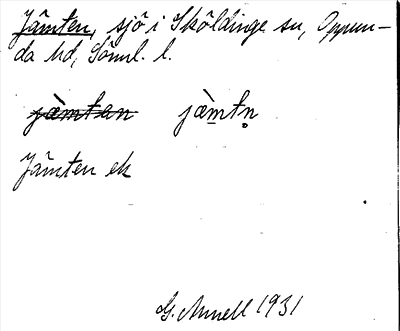 Jämten, sjö i Sköldinge sn, Oppun-
da hd, Söml. l.
jæ̀mtən jæ̀mtn̥
Jämten ek
G. Annell 1931